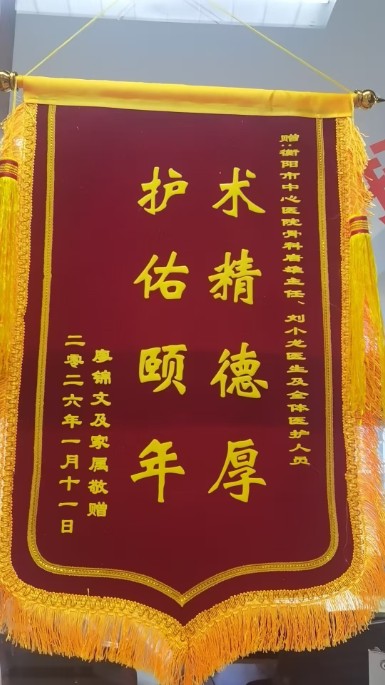 赠：衡阳市中心医院骨科唐雄主任、刘小龙医生及全体医护人员
术精德厚
护佑颐年
廖锦文及家属敬赠
二零二六年一月十一日